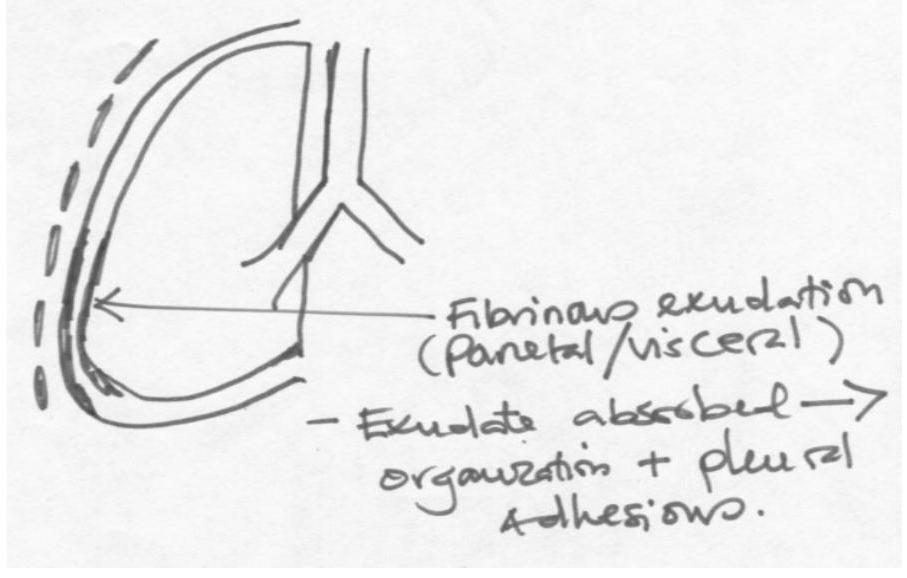 Fibrinous exudation
(Parietal/visceral)
- Exudate absorbed →
organization + pleural
Adhesions.